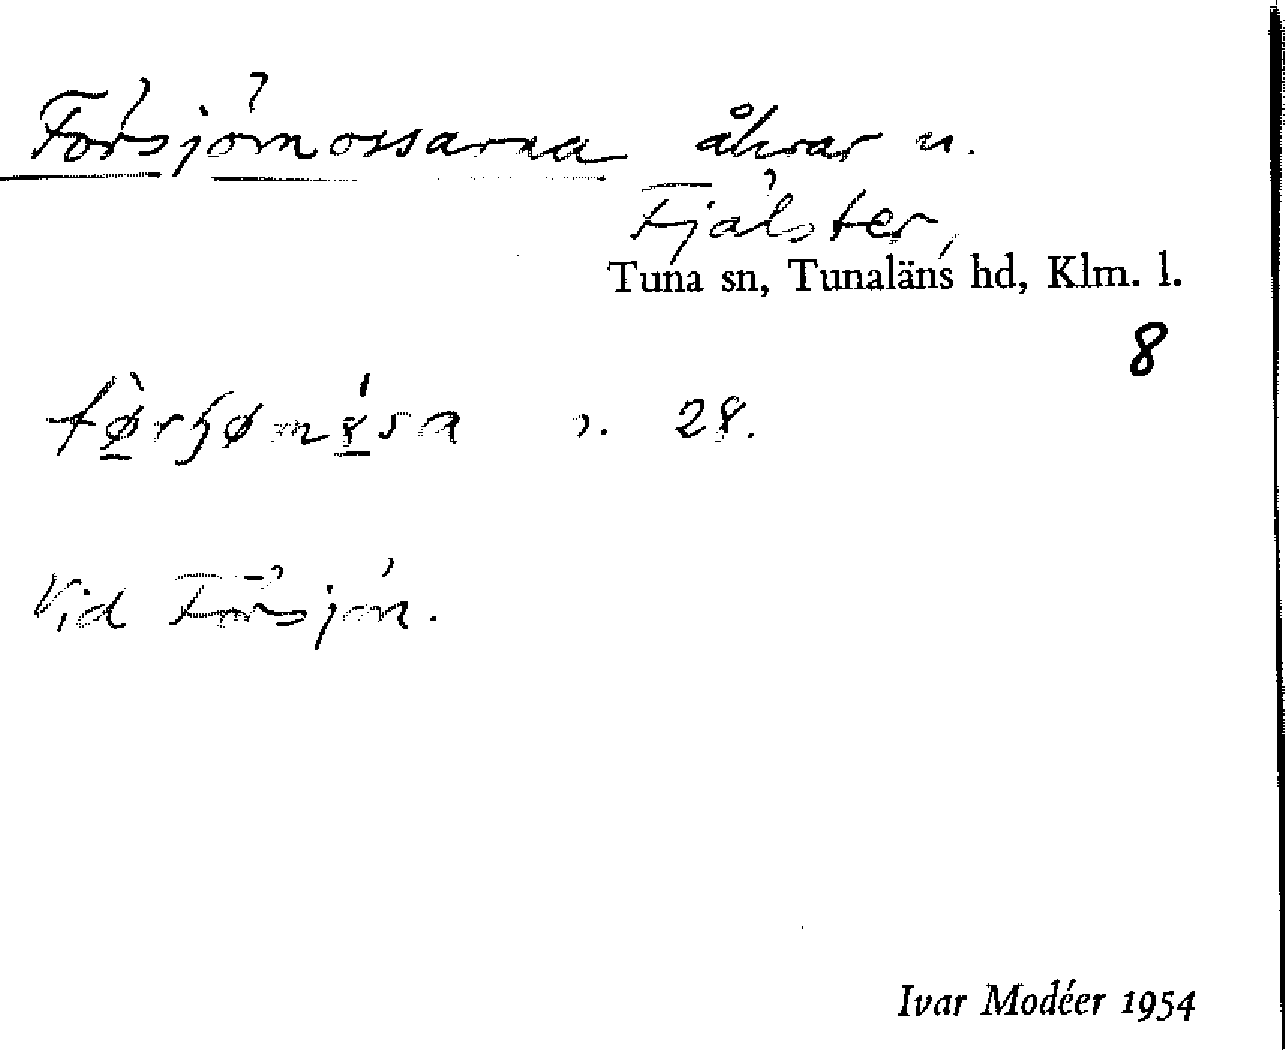 Försjömossarna åkrar u.
Fjälster,
Tuna sn, Tunaläns hd, Klm. l.
8
28.
Vid Försjön.
Ivar Modéer 1954